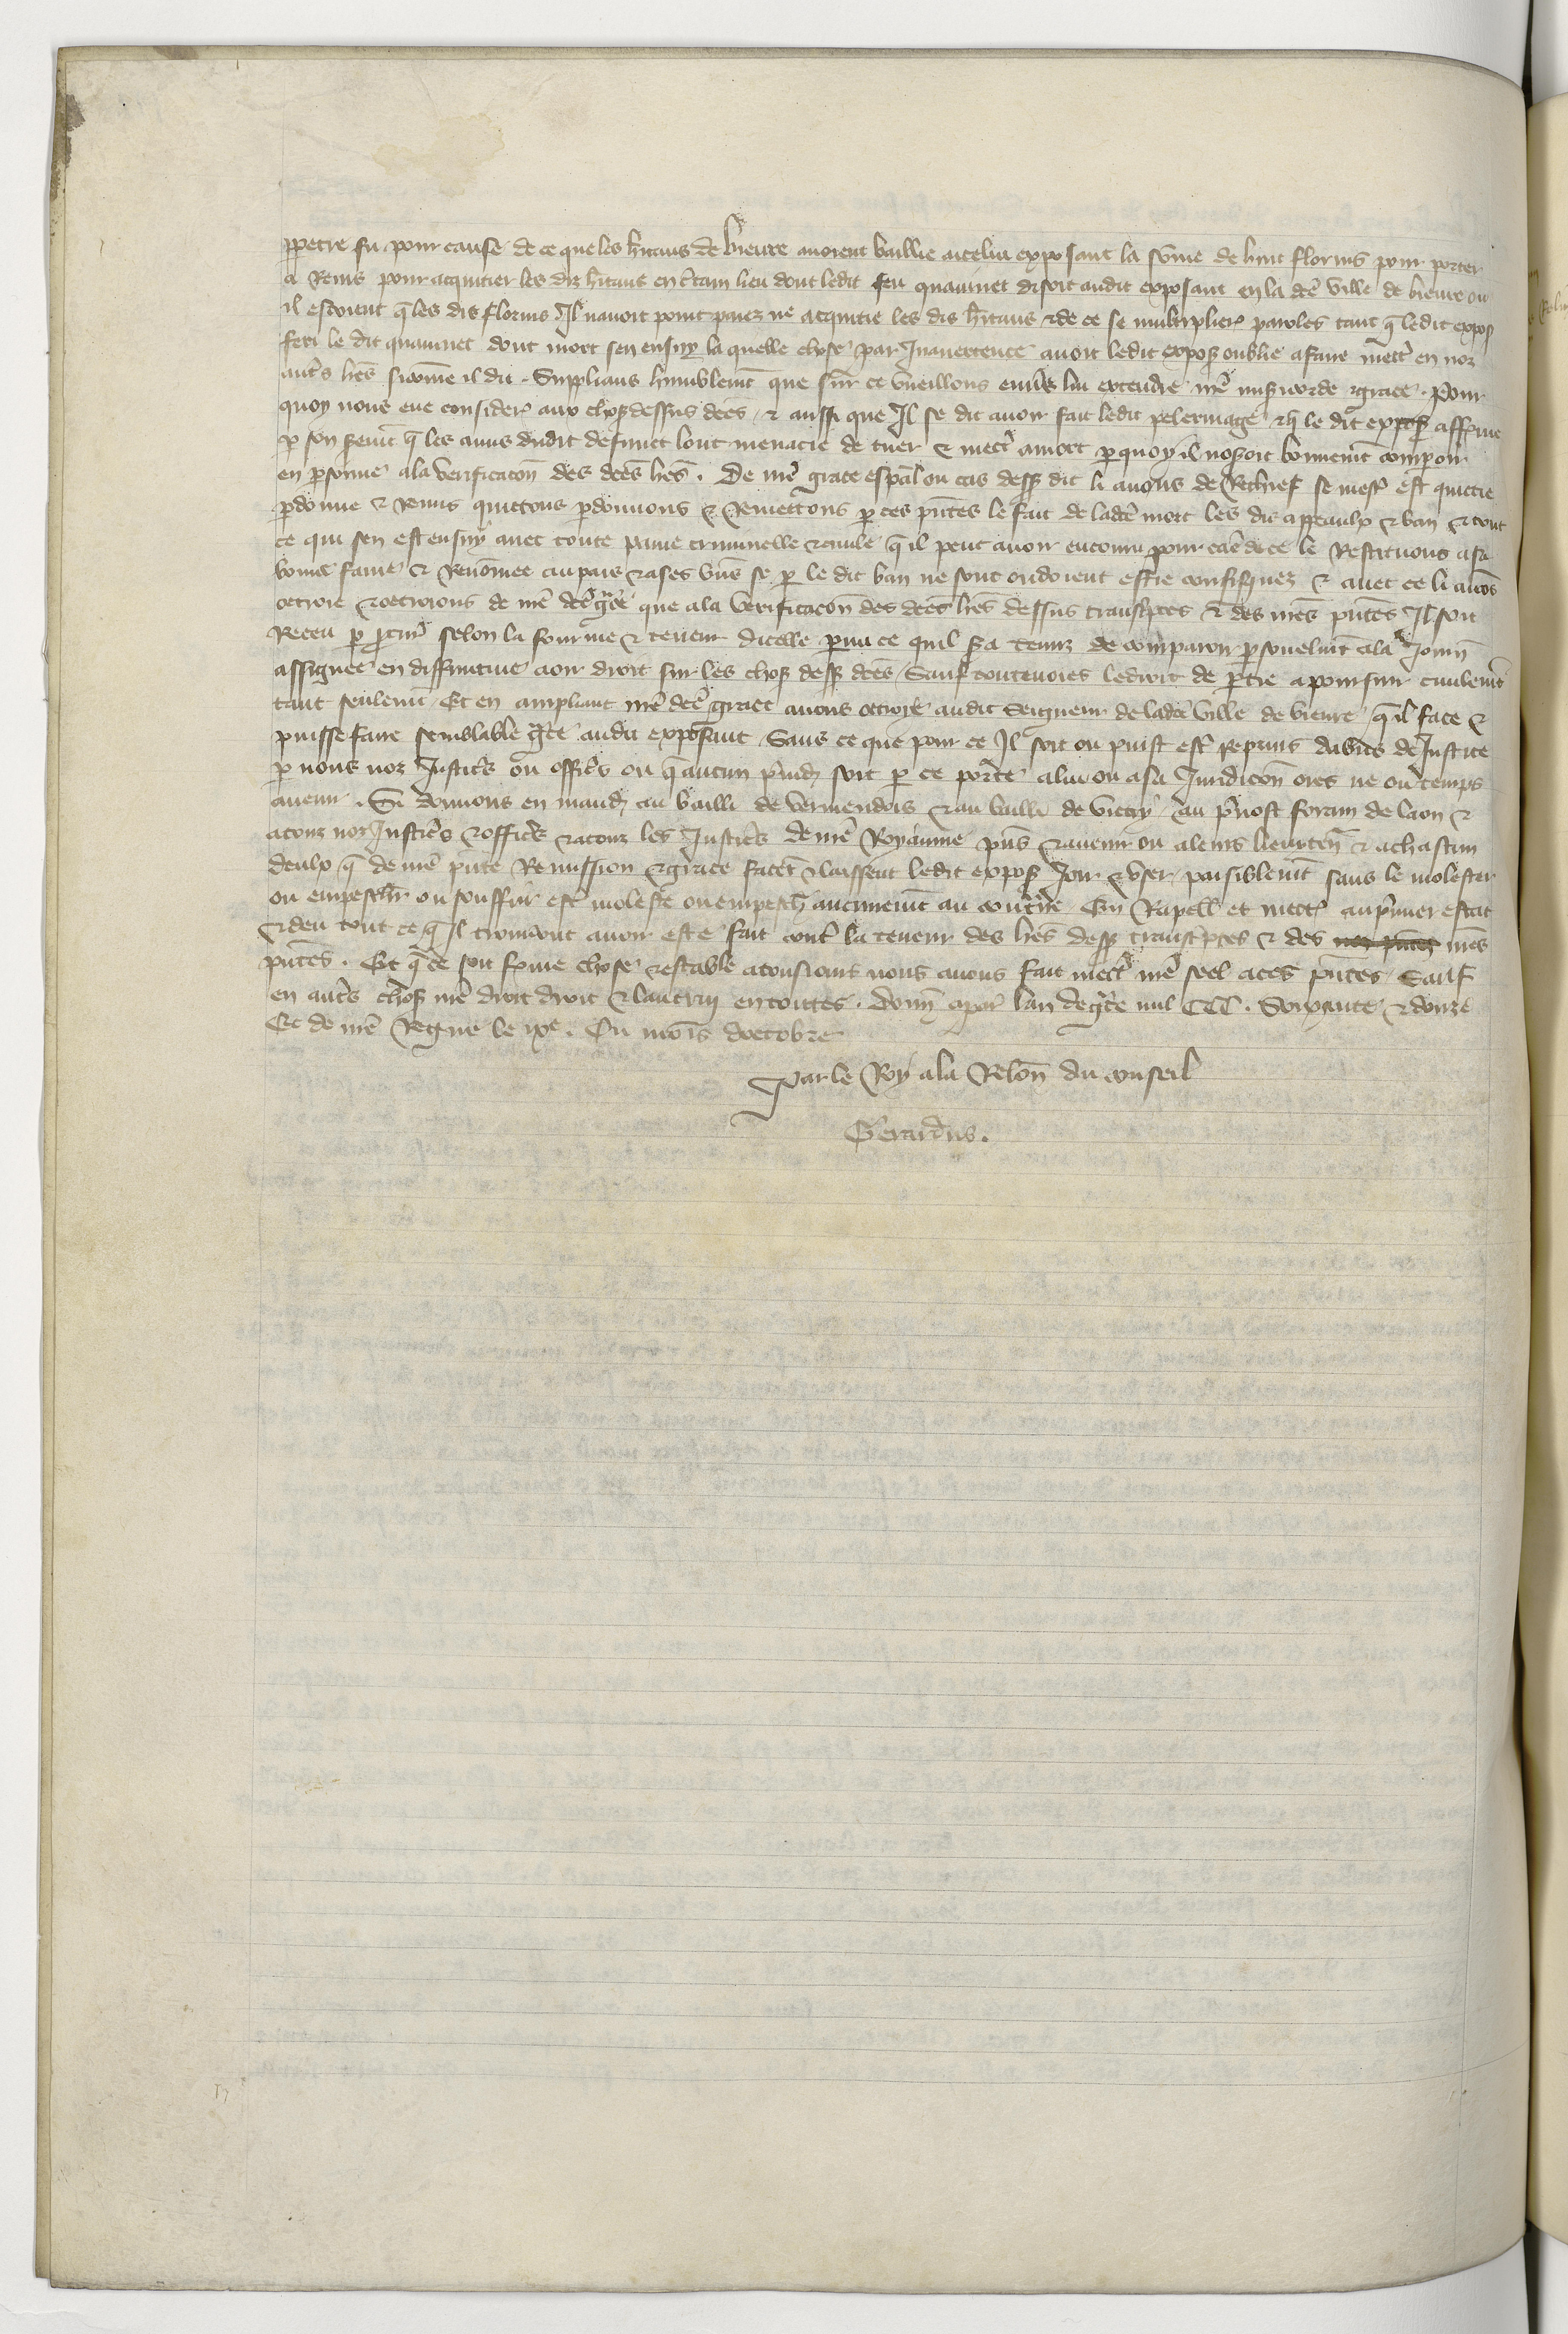 ppetre fu pour cause de ce que les hitans de bieure auoient baillie aicelui exposant la sõme de huit florins pour porter
a Reins pour acquitier les diz hitans en c̃tain lieu dont ledit feu quauinet disoit audit exposant en la dcẽ ville de bieure ou
il estoient q̃ les dis florins Il nauoit point paiez ne acquitie les dis hitans & de ce se multiplier̃ paroles tant q̃ ledit expos̃
feri le dit quauinet dont mort sen ensuy la quelle chose par Inauertence auoit ledit expos̃ oublie a faire mett̃ en noz
aut̃s lr̃es sicõme il dit . Supplians humblemt̃ que sur ce vueillons enu̾s lui extendre nr̃e mis̃icorde & grace . Pour
quoy nous eue consider̃ aux chos̃ dessus dcẽs / & aussi que Il se dit auoir fait ledit pelerinage & q̃ le dit expos̃ afferme
p son serm̃t q̃ les amis dudit defunct lont menacie de tuer & mectr̃ a mort p quoy il nosoit bonnemt̃ comparoir
en p̱sonne a la verificacoñ des dcẽs lr̃es . De nr̃e grace esp̃al ou cas dess̃ dit li auons de Rechief se mest̾ est quictie
p̱donne & Remis quictons p̱donnons & Remettons p ces pñtes le fait de ladcẽ mort les dis appeaulx & ban & tout
ce qui sen est ensuy auec toute paine criminelle & ciuile q̃ il peut auoir encouru pour cãe de ce le Restituons a sa
bonne fame & Renõmee au pais & a ses biẽs se p le dit ban ne sont ou doient estre confisquez & auec ce li auõs
octroie & octroions de nr̃e dcẽ gr̃ce que a la verificacoñ des dcẽs lr̃es dessus transc̃ptes & des nr̃es pñtes Il soit
Receu p procur̃ selon la fourme & teneur dicelle parmi ce quil s̃a tenuz de comparoir p̱sonelmt̃ a la Journ̄
assignee en diffinitiue a oir droit sur les chos̃ dess̃ dcẽs / Sauf toutesuoies ledroit de p̱tie a poursuir ciuilemt̃
tant seulemt̃ / Et en ampliant nr̃e dcẽ grace auons octroye audit Seigneur de ladcẽ ville de bieure q̃ il face &
puisse faire semblable gr̃ce audit exposant Sans ce que pour ce Il soit ou puist est̾ repruis dabus de Justice
p nous noz Justic̾s ou offic̾s ou q̃ aucun p̃iud̃ soit p ce porte a lui ou a sa Juridicoñ ores ne ou temps
auenir . Si donnons en mand̃ au bailli de vermendois & au bailli de victry / au p̃uost forain de laon &
a touz noz Justic̾s & offic̾s & a touz les Justic̾s de nr̃e Royaume pñs & auenir ou a leurs lieuxten̄ & a chascun
deulx q̃ de nr̃e pñte Remission & grace facent & laissent ledit expos̃ Joir & vser paisiblemt̃ sans le molester
ou empescher̃ ou souffrir est̾ moleste ou empesch̃ aucunemt̃ au cont̾re En Rapell̃ et mectr̃ au p̃mier estat
& deu tout ce q̃ Il trouu̾ont auoir este fait cont̾ la teneur des lr̃es dess̃ transc̃ptes & des noz pñtes nr̃es
pñtes . Et q̃ ce soit ferme chose & estable a tousiours nous auons fait mectr̃ nr̃e seel a ces pñtes / Sauf
en aut̃s chos̃ nr̃e droit & lautruy en toutes . Donn̄ a par̃ lan de gr̃ce mil CCC . Soixante & douze
Et de nr̃e Regne le ixe . Ou mois doctobre
Par le Roy a la Relõn du conseil
Gerardus .